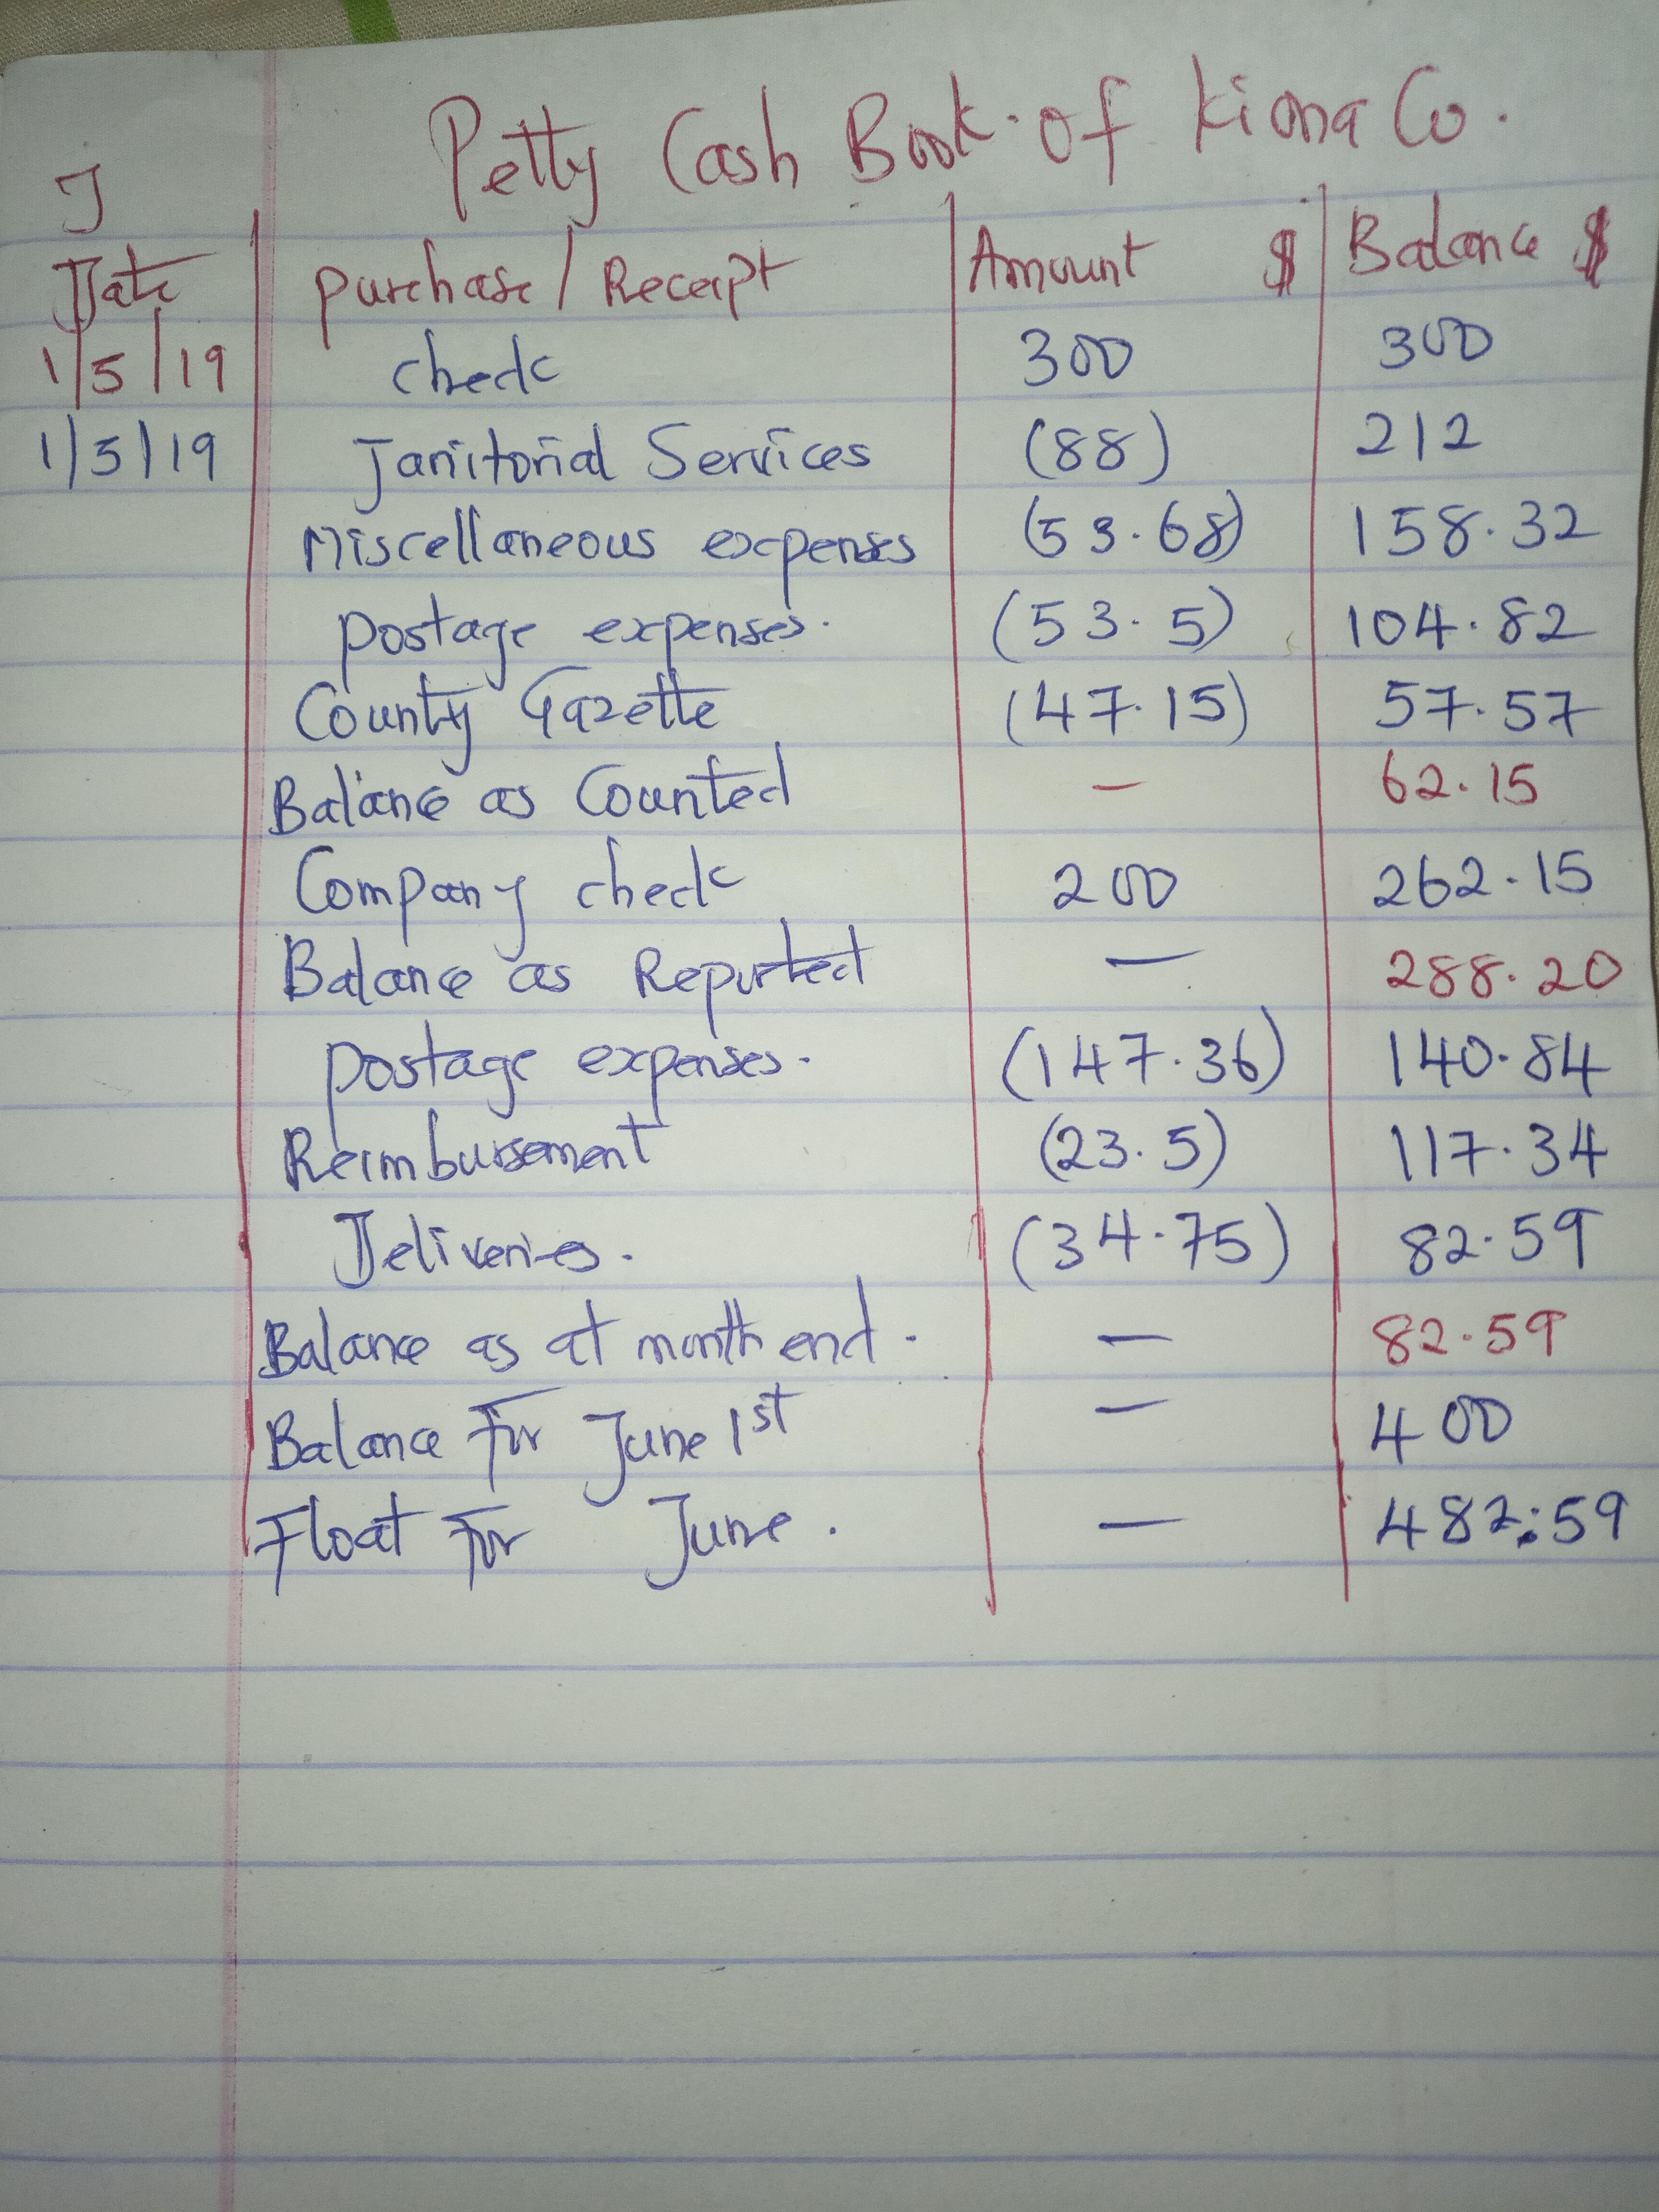 Petty Cash Book of Kiona Co.
J
Date Purchase/Receipt Amount $ Balance $
1/5/19 check 300 300
1/5/19 Janitorial Services (88) 212
Miscellaneous expenses (53.68) 158.32
postage expenses. (53.5) 104.82
County Gazette (47.15) 57.57
Balance as Counted - 62.15
Company check 200 262.15
Balance as Reported - 288.20
postage expenses. (147.36) 140.84
Reimbursement (23.5) 117.34
Deliveries. (34.75) 82.59
Balance as at month end. - 82.59
Balance for June 1st - 400
Float for June. - 482.59